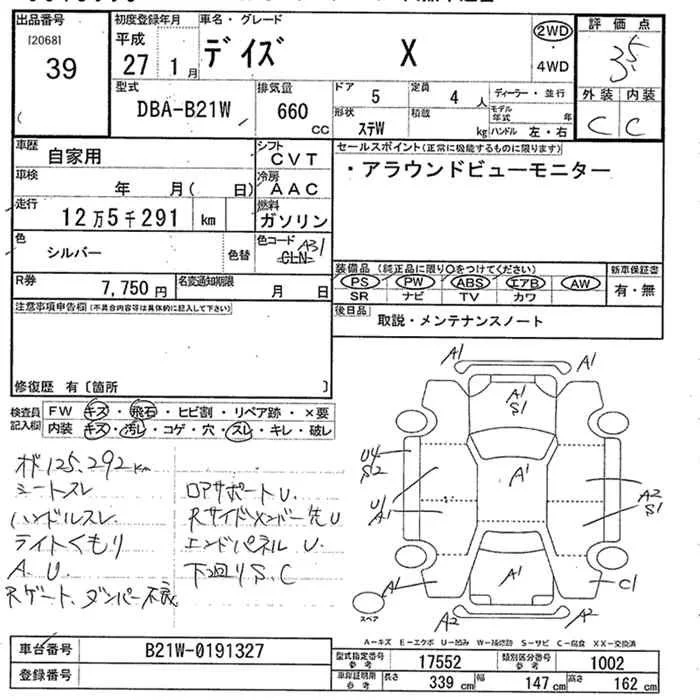 出品番号 初度登録年月 車名・グレード 評価点
[2068] 平成 デイズ X 2WD 3.5
39 27年 1月 4WD
外装 内装
型式 排気量 ドア 5 定員 4人 ディーラー・並行
DBA-B21W 660cc 形状 ステW 積載 kg モデル年式 年 C C
ハンドル 左・右
車歴 自家用 シフト CVT セールスポイント(正常に機能するものに限ります)
車検 年 月( 日) 冷房 AAC ・アラウンドビューモニター
走行 12万5千291 km 燃料 ガソリン
色 シルバー 色替 色コード A31 GLN
装備品(純正品に限り○をつけてください) 新車保証書
R券 7,750円 名変通知期限 月 日 PS PW ABS エアB AW 有・無
SR ナビ TV カワ
注意事項申告欄(不具合内容等は具体的に記入して下さい) 後日品 取説・メンテナンスノート
修復歴 有〔箇所 〕
検査員記入欄 FW キズ・飛石・ヒビ割・リペア跡・×要
内装 キズ・汚レ・コゲ・穴・スレ・キレ・破レ
オド125,292km
シートスレ ロアサポートU.
ハンドルスレ. Rサイドメンバー先U
ライトくもり エンドパネル U.
A. U. 下回りS.C
Rゲート、ダンパー不良
A1 A1
A1
S1
U4
S2
A1
U1
A1
A2
S1
A1 A1 C1
A2 A2
スペア
A-キズ E-エクボ U-凹み W-補修跡 S-サビ C-腐食 XX-交換済
車台番号 B21W-0191327
登録番号
型式指定番号参考 17552 類別区分番号参考 1002
車庫証明用参考 長さ 339cm 幅 147cm 高さ 162cm